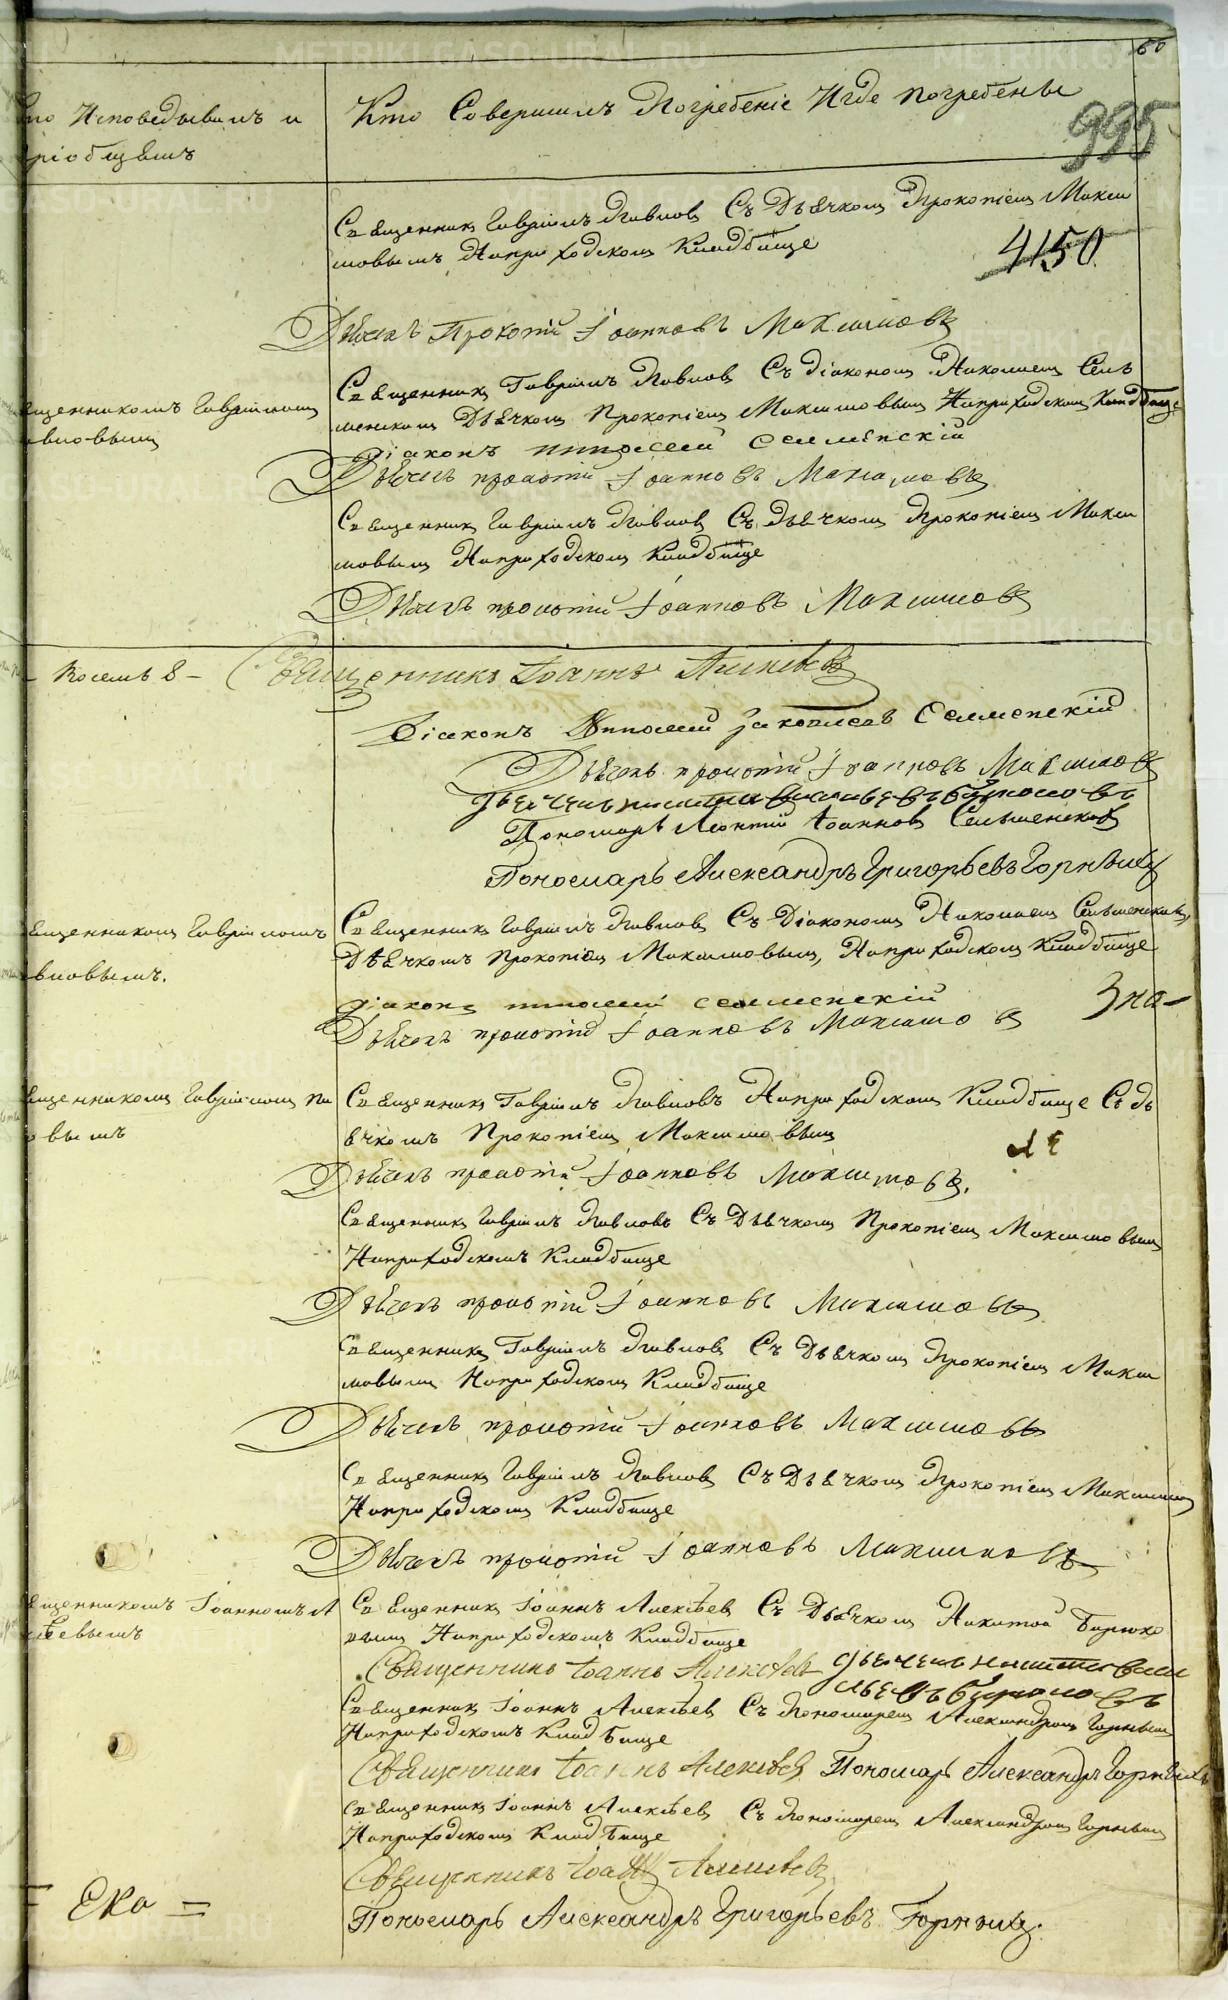 60
Кто Исповедывалъ и
Кто Совершилъ Погребенiе Игде погребены
прiобщалъ
995
Священникъ Гаврiилъ Павловъ Съ Дьячкомъ Прокопiемъ Макси
мовымъ Наприходскомъ Кладбище
4150
Дьячекъ Прокопiй Iоанновъ Максимовъ
Священникъ Гаврiилъ Павловъ Съ дiакономъ Николаемъ Селъ
менскимъ Дьячкомъ Прокопiемъ Максимовымъ Наприходскомъ Кладбище
Священникомъ Гаврiиломъ
Павловымъ
Дiаконъ Николай Селменскiй
Дьячекъ прокопiй Iоанновъ Максимовъ
Священникъ Гаврiилъ Павловъ Съ дьячкомъ Прокопiемъ Макси
мовымъ Наприходскомъ Кладбище
Дьячекъ прокопiй Iоанновъ Максимовъ
Восемь 8 –
Священникъ Iоаннъ Алексѣевъ
Дiаконъ Николай Селменскiй
Дьячекъ прокопiй Iоанновъ Максимовъ
Дьячекъ никита Васильевъ Бирюковъ
Пономарь Леонтiй Iоанновъ Сельменскiй
Пономарь Александръ Григорьевъ Горныхъ
Священникомъ Гаврiиломъ
Павловымъ.
Священникъ Гаврiилъ Павловъ Съ Дiакономъ Николаемъ Сельменскимъ,
Дьячкомъ Прокопiемъ Максимовымъ, Наприходскомъ Кладбище
Дiаконъ николай селменскiй
Зна–
Дьячекъ прокопiй Iоанновъ Максимовъ
Священникомъ Гаврiиломъ Па
вловымъ
Священникъ Гаврiилъ Павловъ Наприходскомъ Кладбище Съ дь
ячкомъ Прокопiемъ Максимовымъ
Дьячекъ прокопiй Iоанновъ Максимовъ.
Священникъ Гаврiилъ Павловъ Съ Дьячкомъ Прокопiемъ Максимовымъ
Наприходскомъ Кладбище
Дьячекъ прокопiй Iоанновъ Максимовъ
Священникъ Гаврiилъ Павловъ Съ Дьячкомъ Прокопiемъ Макси
мовымъ Наприходскомъ Кладбище
Дьячекъ прокопiй Iоанновъ Максимовъ
Священникъ Гаврiилъ Павловъ Съ Дьячкомъ Прокопiемъ
Наприходскомъ Кладбище
Дьячекъ прокопiй Iоанновъ Максимовъ
Священникомъ Iоанномъ Ал
ексѣевымъ
Священникъ Iоаннъ Алексѣевъ Съ Дьячкомъ Никитой Бирюко
вымъ Наприходскомъ Кладбище
Священникъ Iоаннъ Алексѣевъ Дьячекъ никита Васи
льевъ Бирюковъ
Священникъ Iоаннъ Алексѣевъ Съ Пономаремъ Александромъ Горнымъ
Наприходскомъ Кладбище
Священникъ Iоаннъ Алексѣевъ Пономарь Александръ Горныхъ
Священникъ Iоаннъ Алексѣевъ Съ Пономаремъ Александромъ Горнымъ
Наприходскомъ Кладбище
Священникъ Iоаннъ Алексѣевъ
Ека =
Пономарь Александръ Григорьевъ Горныхъ.